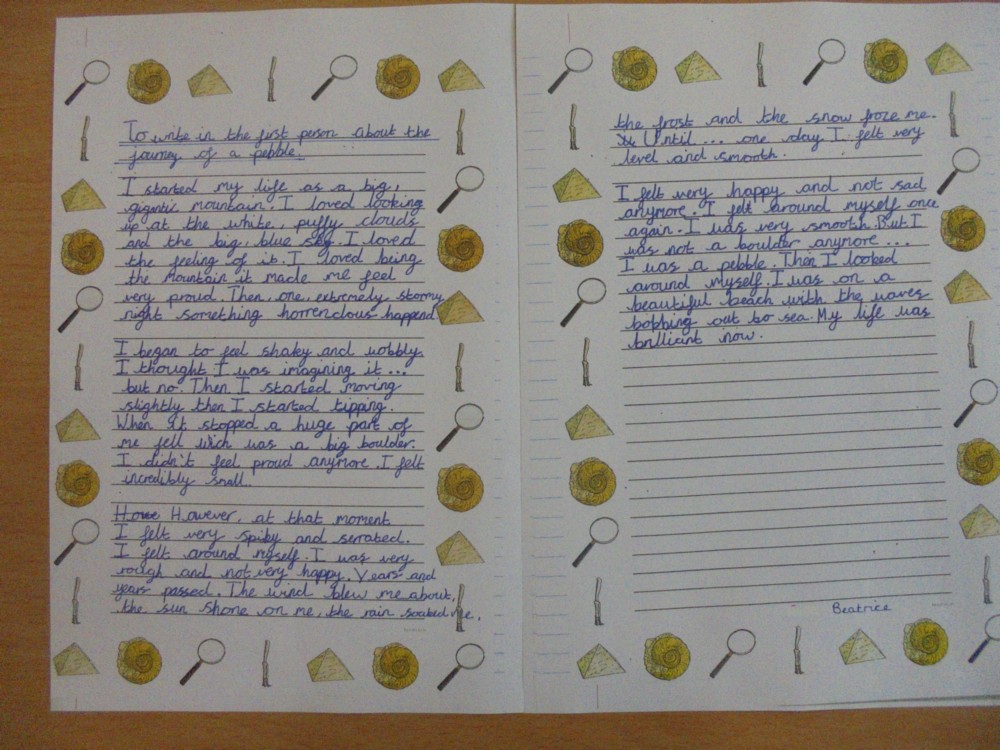 To write in the first person about the
journey of a pebble.
I started my life as a big,
gigantic mountain. I loved looking
up at the white, puffy clouds
and the big, blue sky. I loved
the feeling of it. I loved being
the mountain it made me feel
very proud. Then, one, extremely stormy
night something horrendous happend.
I began to feel shaky and wobbly.
I thought I was imagining it ...
but no. Then I started moving
slightly then I started tipping.
When it stopped a huge part of
me fell wich was a big boulder.
I didn't feel proud anymore. I felt
incredibly small.
However, at that moment
I felt very spiky and serrated.
I felt around myself. I was very
rough and not very happy. Years and
years passed. The wind blew me about,
the sun shone on me, the rain soaked me,
the frost and the snow froze me.
Until ... one day I felt very
level and smooth.
I felt very happy and not sad
anymore. I felt around myself once
again. I was very smooth. But I
was not a boulder anymore ...
I was a pebble. Then I looked
around myself. I was on a
beautiful beach with the waves
bobbing out to sea. My life was
brilliant now.
Beatrice